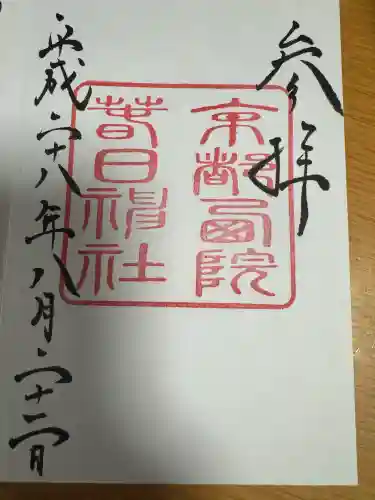 参拝
京都西院
春日神社
平成二十八年八月二十二日